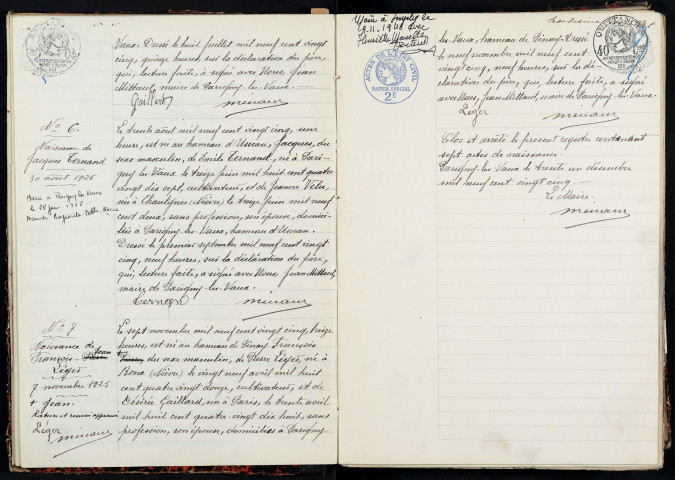 Vaux. Dressé le huit juillet mil neuf cent vingt
cinq, quinze heures, sur la déclaration du père,
qui, lecture faite, a signé avec Nous, Jean
Mittaud, maire de Parigny-les-Vaux.
N° 6.
Naissance de
Jacques Ternand
30 août 1925
Marié à Parigny les Vaux
le 28 juin
Le trente août mil neuf cent vingt cinq, une
heure, est né au hameau d'Usseau, Jacques, du
sexe masculin, de Emile Ternand, né à Pari-
gny-les-Vaux le treize juin mil huit cent quatre
vingt dix sept, cultivateur, et de Jeanne
née à Chaulgnes (Nièvre) le treize juin mil neuf
cent deux, sans profession, son épouse, domici-
liés à Parigny-les-Vaux, hameau d'Usseau.
Dressé le premier septembre mil neuf cent vingt
cinq, neuf heures, sur la déclaration du père,
qui, lecture faite, a signé avec Nous, Jean Mittaud,
maire de Parigny-les-Vaux.
N° 7
Naissance de
François-Jean
Léger
7 novembre 1925
+ Jean.
Rature et renvoi approuvés
Léger
Le sept novembre mil neuf cent vingt cinq, treize
heures, est né au hameau de Pinay François
+ du sexe masculin, de Pierre Léger, né à
Bona (Nièvre) le vingt neuf avril mil huit
cent quatre vingt douze, cultivateur, et de
Désirée Gaillard, née à Paris, le trente avril
mil huit cent quatre vingt dix huit, sans
profession, son épouse, domiciliés à Parigny
Marié à le
1948 avec
ACTES DE L'ÉTAT CIVIL
PAPIER SPÉCIAL
2F
les Vaux, hameau de Pinay. Dressé
le neuf novembre mil neuf cent
vingt cinq, neuf heures, sur la dé-
claration du père, qui, lecture faite, a signé
avec Nous, Jean Mittaud, maire de Parigny-les-Vaux.
Léger
Clos et arrêté le présent registre contenant
sept actes de naissance.
Parigny-les-Vaux le trente un décembre
mil neuf cent vingt cinq.
Le Maire.
40